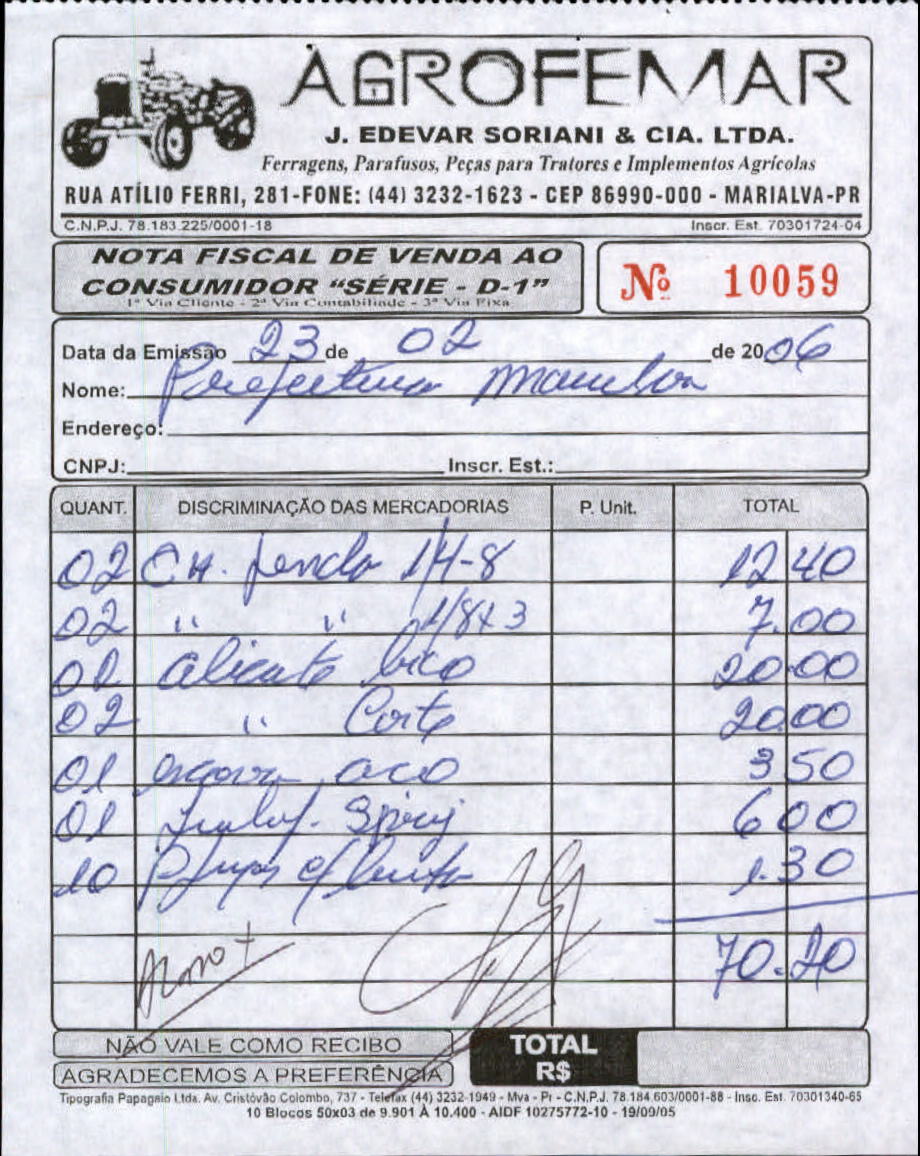 AGROFEMAR
J. EDEVAR SORIANI & CIA. LTDA.
Ferragens, Parafusos, Peças para Tratores e Implementos Agrícolas
RUA ATÍLIO FERRI, 281-FONE: (44) 3232-1623 - CEP 86990-000 - MARIALVA-PR
C.N.P.J. 78.183.225/0001-18 Inscr. Est. 70301724-04
NOTA FISCAL DE VENDA AO
CONSUMIDOR "SÉRIE - D-1"
1ª Via Cliente - 2ª Via Contabilidade - 3ª Via Fixa
Nº 10059
Data da Emissão 23 de 02 de 2006
Nome: Prefeitura
Endereço:
CNPJ: Inscr. Est.:
QUANT. DISCRIMINAÇÃO DAS MERCADORIAS P. Unit. TOTAL
02 CH. fenda 1/4-8 12 40
02 " " 1/8x3 7.00
01 alicate bico 20.00
02 " Corte 20.00
01 escova aço 3 50
01 6 00
10 1.30
70.20
NÃO VALE COMO RECIBO
AGRADECEMOS A PREFERÊNCIA
TOTAL
R$
Tipografia Papagaio Ltda. Av. Cristóvão Colombo, 737 - Telefax (44) 3232-1949 - Mva - Pr - C.N.P.J. 78.184.603/0001-88 - Insc. Est. 70301340-65
10 Blocos 50x03 de 9.901 À 10.400 - AIDF 10275772-10 - 19/09/05